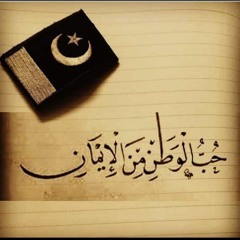 حُبُّ الْوَطَنِ مِنَ الْإِيْمَانِ